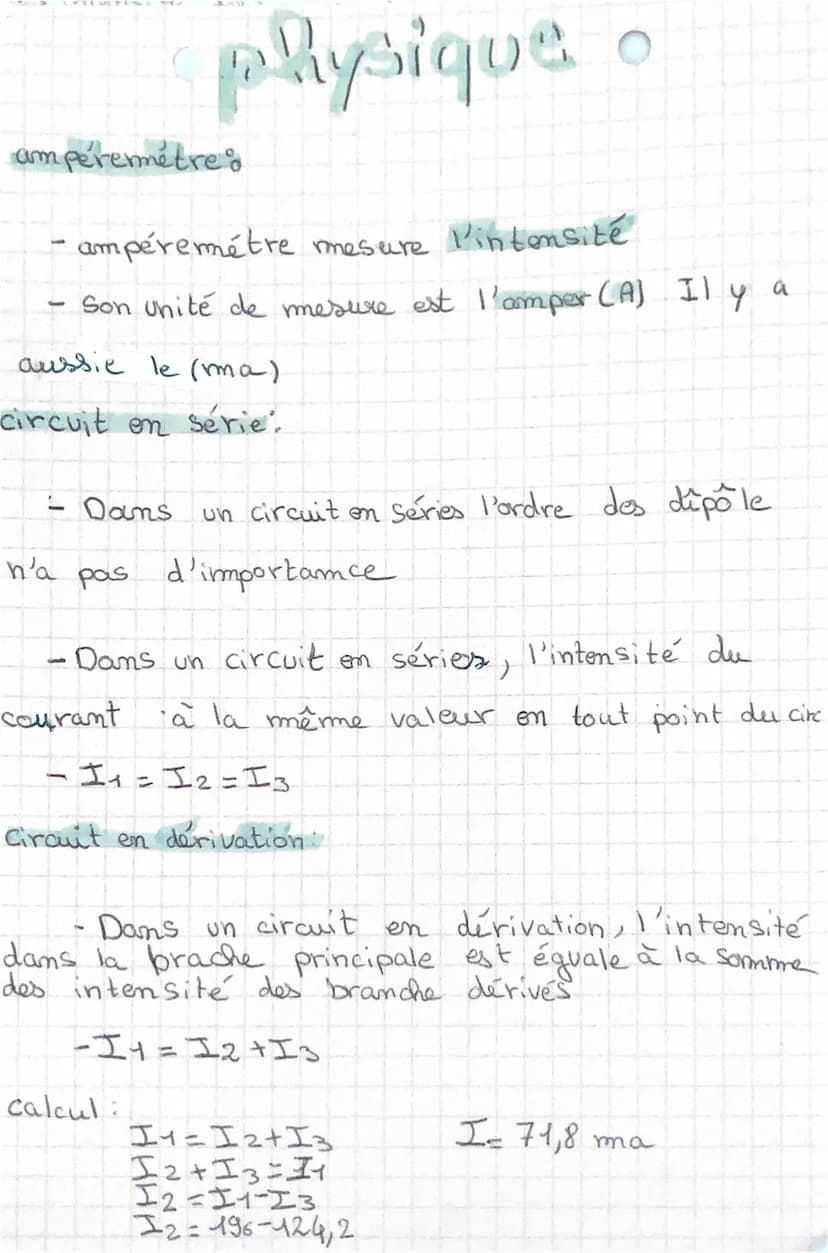 physique
ampéremétre:
- ampéremétre mesure l'intensité
- Son unité de mesure est l'amper (A) Il y a
aussie le (ma)
circuit en série:
- Dans un circuit en séries l'ordre des dîpôle
n'a pas d'importance
- Dans un circuit en séries, l'intensité du
courant à la même valeur en tout point du circ
- I1 = I2 = I3
Circuit en dérivation:
- Dans un circuit en dérivation, l'intensité
dans la brache principale est éguale à la somme
des intensité des branche dérivés
- I1 = I2 + I3
calcul :
I1 = I2 + I3 I = 71,8 ma
I2 + I3 = I1
I2 = I1 - I3
I2 = 196 - 124,2